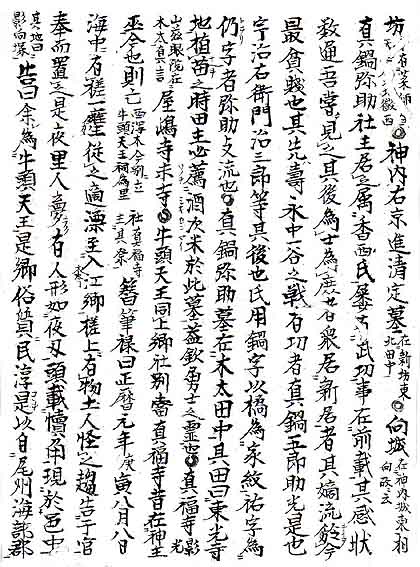 神内右京進清定墓 在新坊東北田中 向城 在神内城東相向故云
真鍋弥助社主居之属香西氏屡有武功事在前載其感状
数通吾嘗見之其後為士為庶也日衆居新居者其嫡流於今
最貧賤也其先壽永中一谷之戰有功者真鍋五郎助光是也
宇治右衛門治三郎等其後也氏用鍋字以橋為家紋祐字為
仍字者弥助支流也真鍋弥助墓在木太田中其田曰東光寺
地植苗之時田主必薦酒次米於此墓蓋欽勇士之霊也真福寺 光
屋嶋寺末寺牛頭天王同上郷社別當真福寺昔在神主
巫今也則亡 西浮木今別立牛頭天王祠為里社真福寺主其祭 舊筆禄曰正暦元年庚寅八月八日
海中有槎一䑺徒之適漂至入江郷槎上有物土人怪之趨告于官
奉而置之是夜里人夢有人形如夜叉頭載犢角現於邑中
其地曰影向塚 告曰余為牛頭天王是郷俗質民淳是以自尾州海部郡